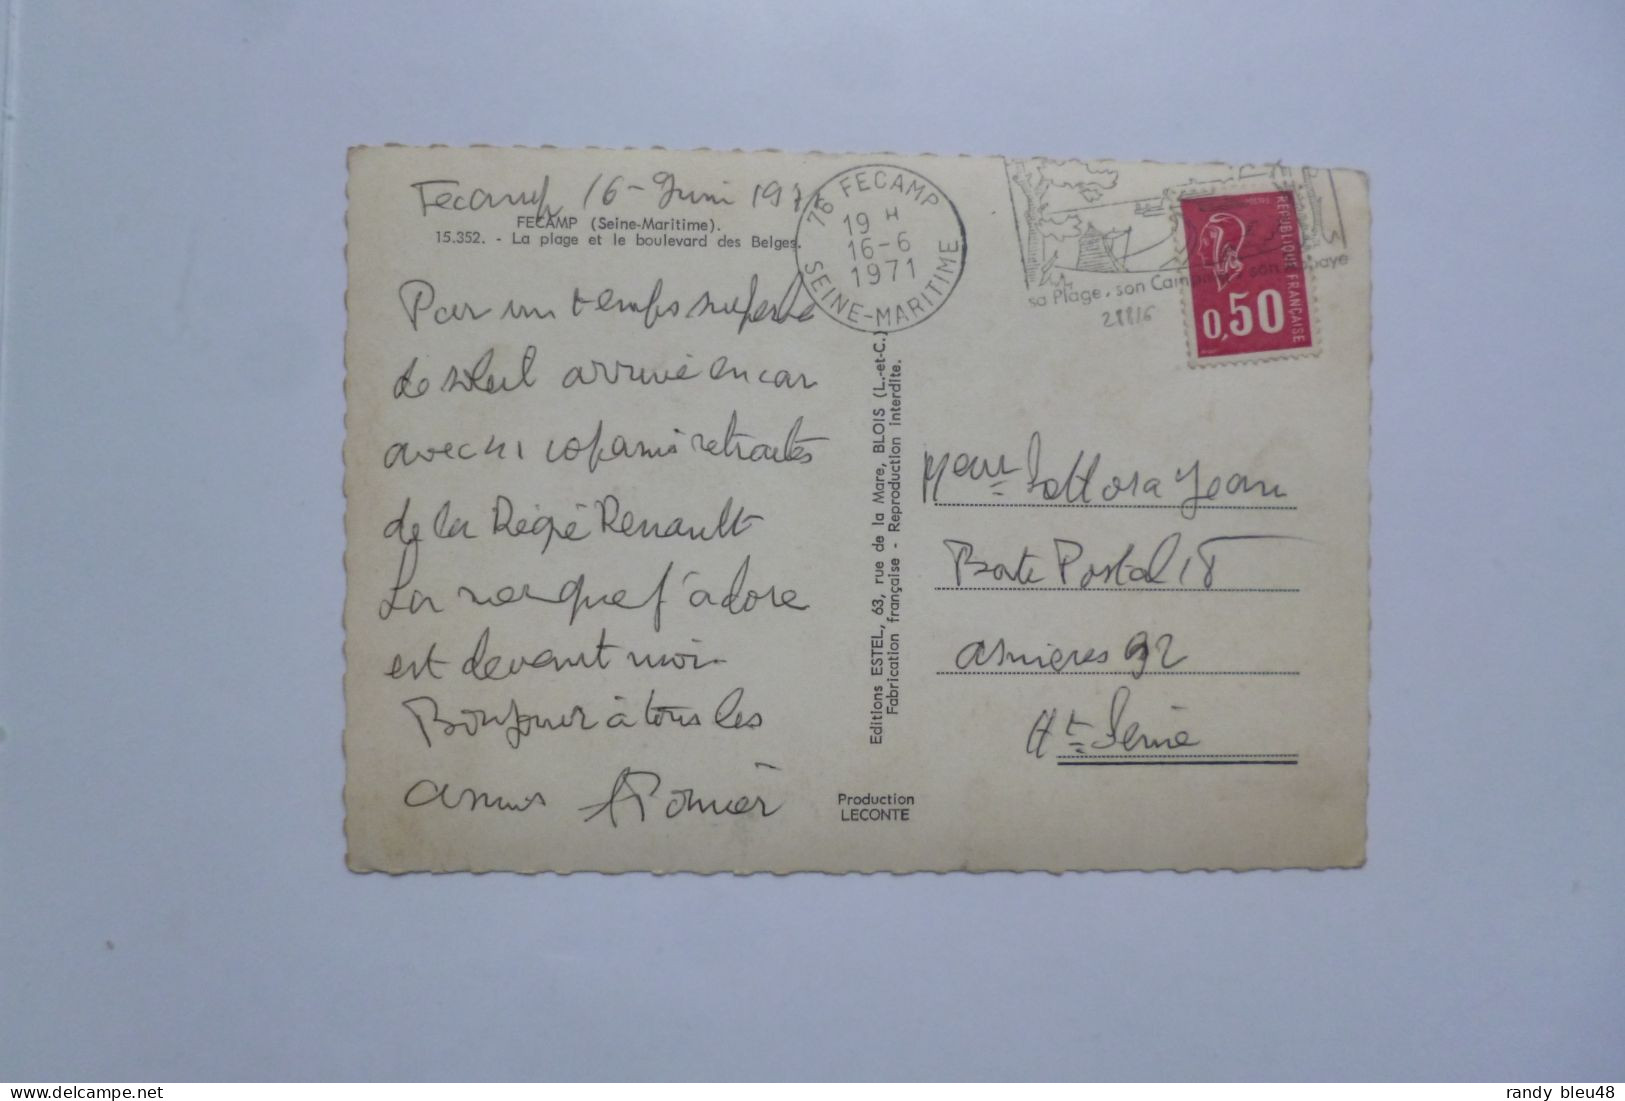 Fecamp 16 - Juin 1971
FECAMP (Seine-Maritime).
15.352. - La plage et le boulevard des Belges.
Par un temps superbe
de soleil arrivé en car
avec copains retraités
de la Régie Renault
La mer que j'adore
est devant moi
Bonjour à tous les
amis
76 FECAMP
19 H
16-6
1971
SEINE-MARITIME
sa Plage, son son
28816
REPUBLIQUE FRANÇAISE
0,50
Editions ESTEL, 63, rue de la Mare, BLOIS (L.-et-C.)
Fabrication française - Reproduction interdite.
Jean
Boite Postal 18
asnieres 92
Ht Seine
Production
LECONTE
randy bleu48